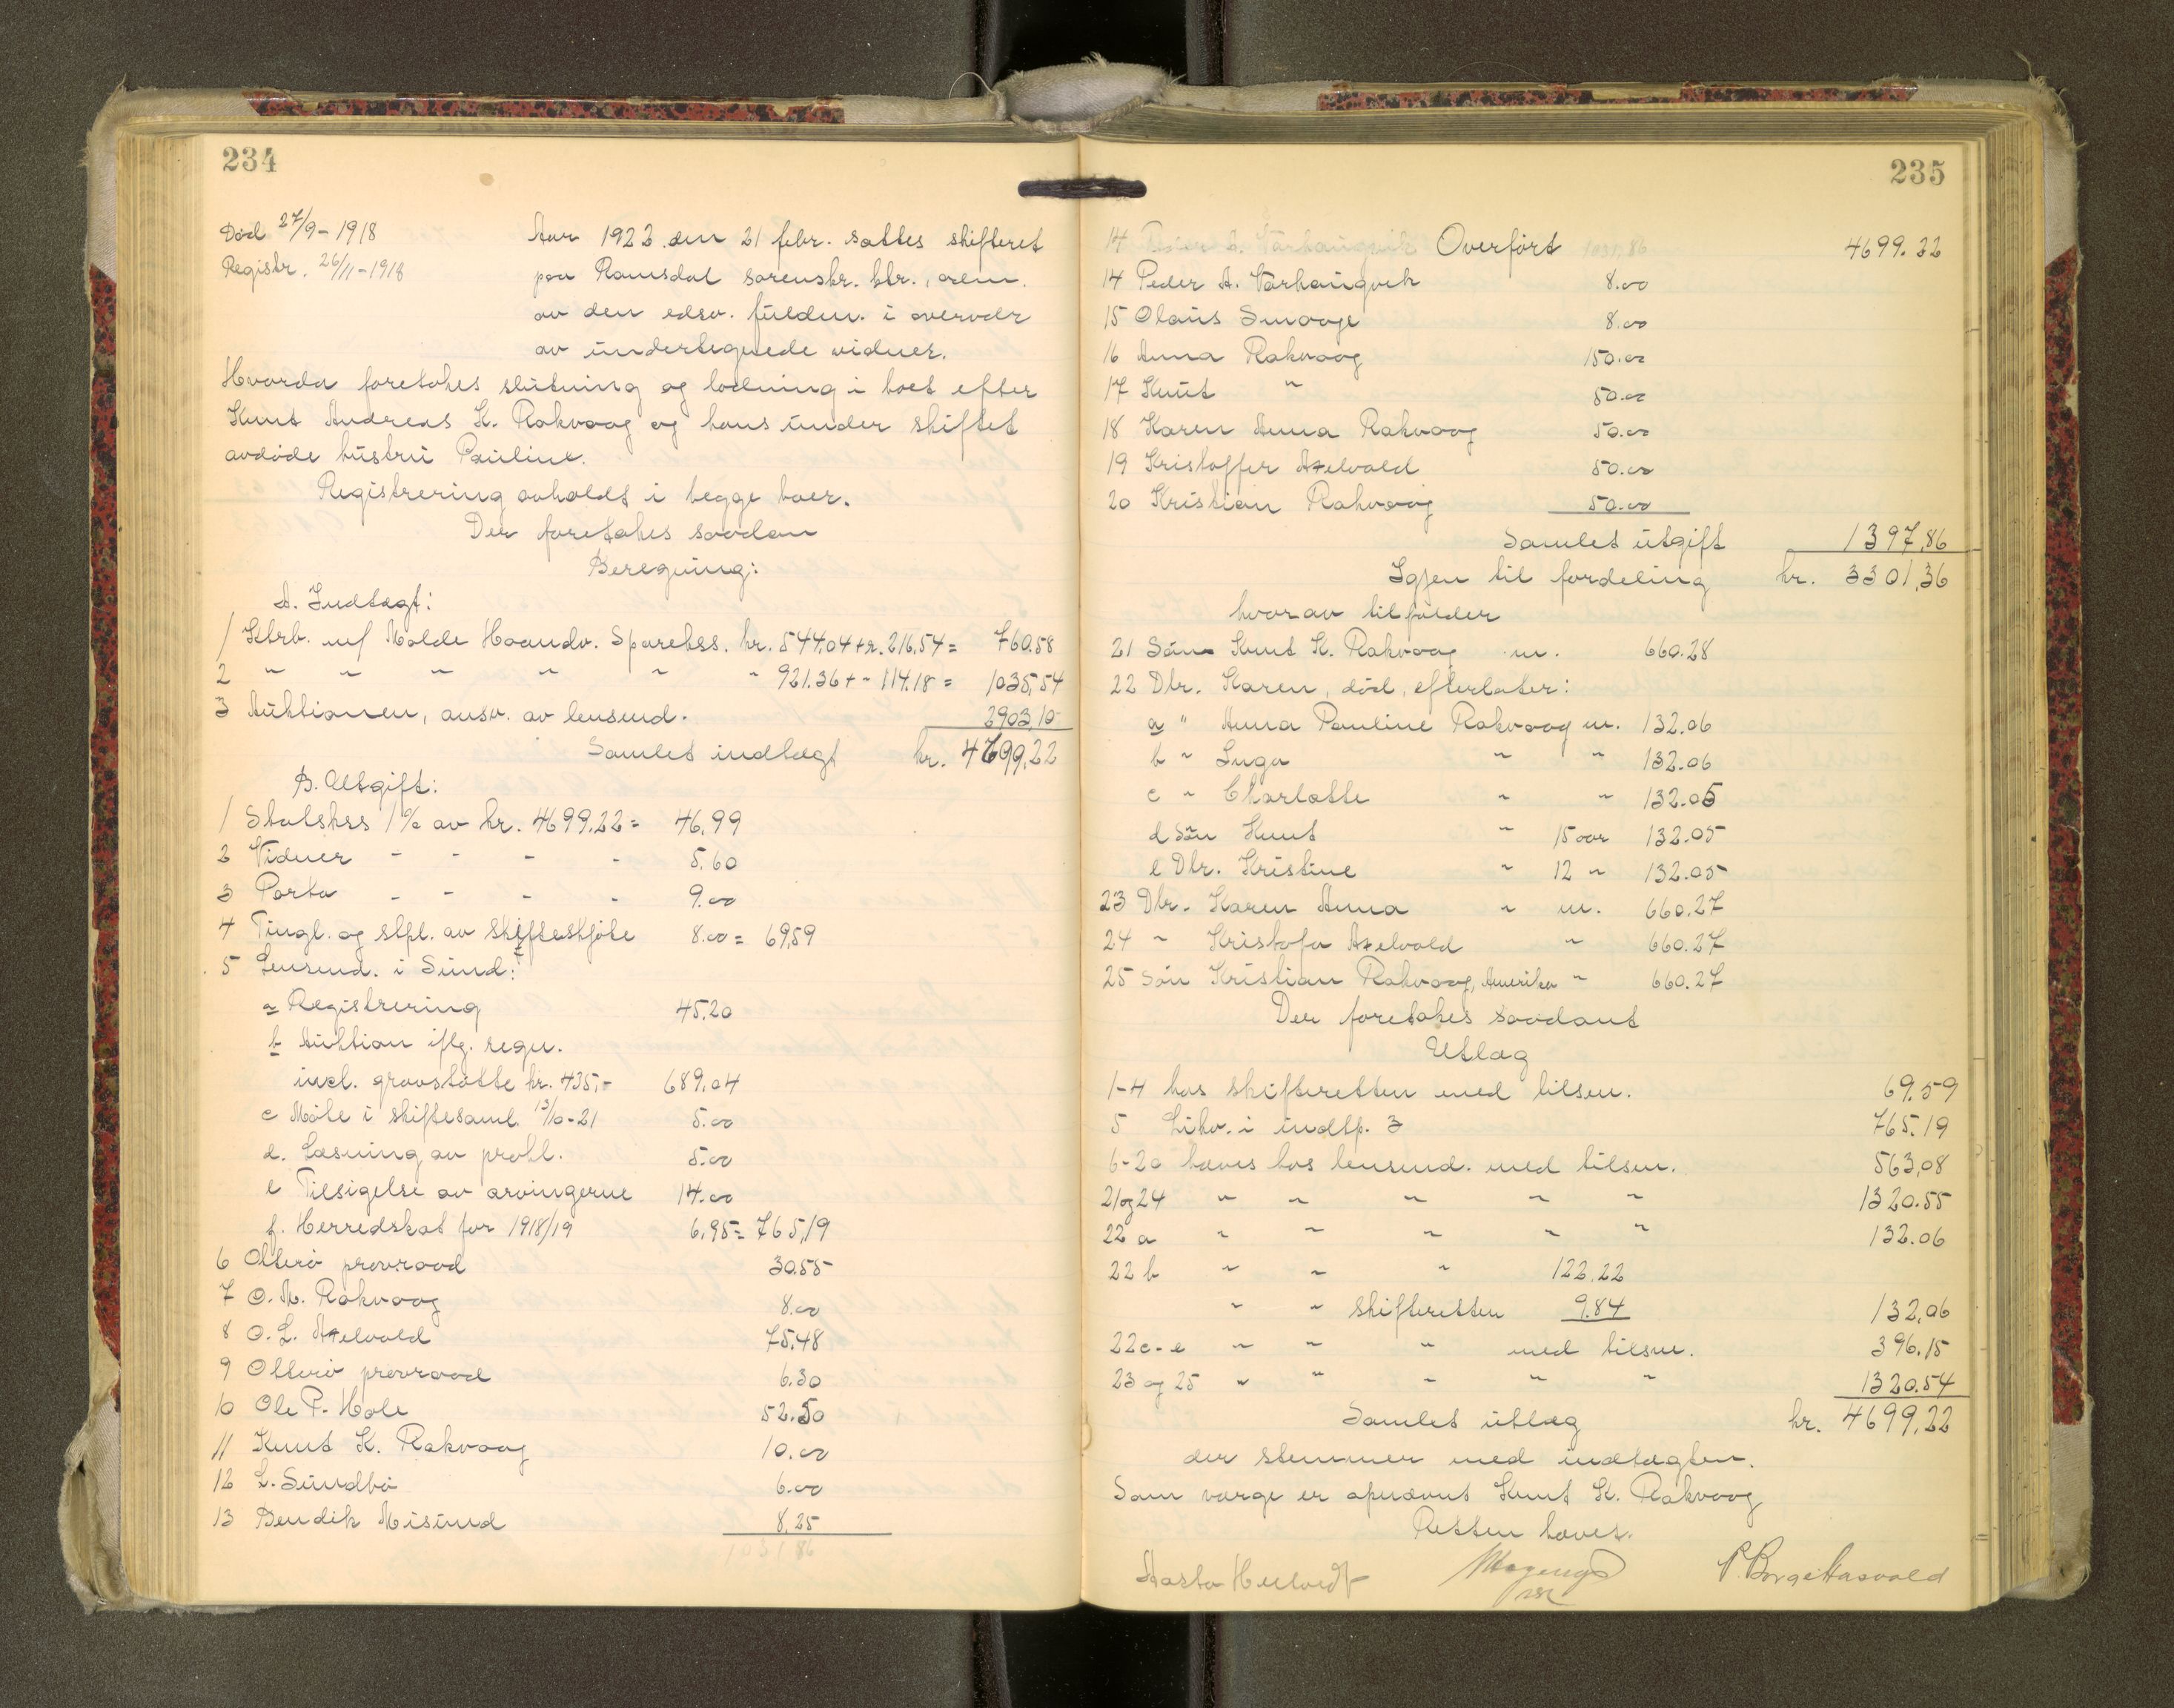 234
Död 27/9-1918
Registr. 26/11-1918
Aar 1922 den 21 febr. sattes skifteret
paa Romsdal sorenskr. ktr., adm.
av den edsv. fuldm. i overvær
av undertegnede vidner.
Hvorda foretokes slutning og lodning i boet efter
Knut Andreas K. Rakvaag og hans under skiftet
avdøde hustru Pauline.
Registrering avholdt i begge boer.
Der foretokes saadan
Beregning:
A. Indtægt:
1 Ktrb. m/ Molde Haandv. Sparekss. kr. 544,04 + r. 216,54 = 760.58
2 " " " " " " 921.36 + " 114.18 = 1035,54
3 Auktionen, ansv. av lensmd. 2903,10
Samlet indtægt kr. 4699,22
B. Utgift:
1 Statskss 1% av kr. 4699.22 = 46.99
2 Vidner - - - - 5.60
3 Porto - - - - 9.00
4 Tingl. og stpl. av skifteskjøte 8.00 = 69,59
5 Lensmd. i Sund:
a Registrering 45.20
b Auktion iflg. regn.
incl. gravstøtte kr. 435,- 689,04
c Møte i skiftesaml. 13/10-21 5.00
d. Læsning av prokl. 5.00
e Tilsigelse av arvingerne 14.00
f. Herredskat for 1918/19 6,95 = 765,19
6 Otterø provraad 30.55
7 O. M. Rakvaag 8.00
8 O. L. Axelvold 75.48
9 Otterø provraad 6.30
10 Ole P. Hole 52.50
11 Knut K. Rakvaag 10.00
12 L. Sundbø 6.00
13 Bendik Misund 8,25
1031 86
235
14 Peder A. Varhaugvik Overført 1031,86 4699.22
14 Peder A. Varhaugvik 8.00
15 Olaus Smaage 8.00
16 Anna Rakvaag 150.00
17 Knut " 50.00
18 Karen Anna Rakvaag 50.00
19 Kristoffer Axelvold 50.00
20 Kristian Rakvaag 50.00
Samlet utgift 1397,86
Igjen til fordeling kr. 3301,36
hvorav tilfalder
21 Søn Knut K. Rakvaag m. 660.28
22 Dtr. Karen, död, efterlater:
a " Anna Pauline Rakvaag m. 132.06
b " Inga " " 132.06
c " Charlotte " " 132.05
d Søn Knut " 15 aar 132.05
e Dtr. Kristine " 12 " 132.05
23 Dtr. Karen Anna " m. 660.27
24 " Kristofa Axelvold " 660.27
25 Søn Kristian Rakvaag, Amerika " 660.27
Der foretokes saadant
Utlæg
1-4 hos skifteretten med tilsm. 69.59
5 Likv. i indtp. 3 765.19
6-20 hæves hos lensmd. med tilsm. 563,08
21 og 24 " " " " " 1320.55
22 a " " " " " 132.06
22 b " " " 122.22
" " skifteretten 9.84 132,06
22 c-e " " " med tilsm. 396.15
23 og 25 " " " " " 1320.54
Samlet utlæg kr. 4699,22
der stemmer med indtægten.
Som værge er opnævnt Knut K. Rakvaag
Retten hævet.